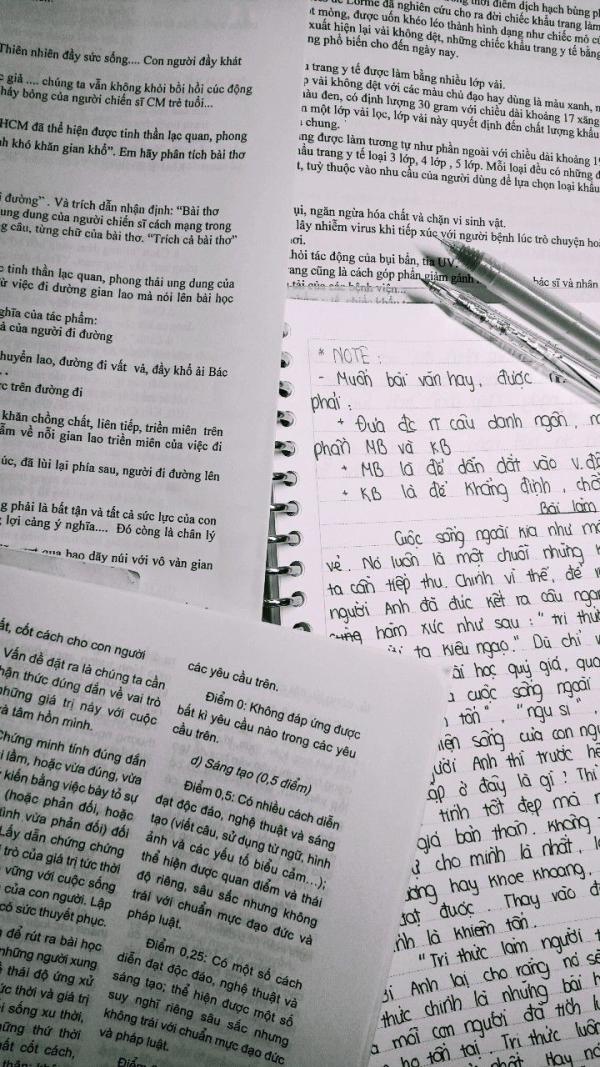 Thiên nhiên đầy sức sống.... Con người đầy khát
giả .... chúng ta vẫn không khỏi bồi hồi cúc động
bóng của người chiến sĩ CM trẻ tuổi...
HCM đã thể hiện được tinh thần lạc quan, phong
khó khăn gian khổ”. Em hãy phân tích bài thơ
đường” . Và trích dẫn nhận định: “Bài thơ
ung dung của người chiến sĩ cách mạng trong
câu, từng chữ của bài thơ. “Trích cả bài thơ”
tinh thần lạc quan, phong thái ung dung của
từ việc đi đường gian lao mà nói lên bài học
nghĩa của tác phẩm:
của người đi đường
chuyển lao, đường đi vất vả, đầy khổ ải Bác
trên đường đi
khăn chồng chất, liên tiếp, triền miên trên
về nỗi gian lao triền miên của việc đi
đã lùi lại phía sau, người đi đường lên
phải là bất tận và tất cả sức lực của con
lợi càng ý nghĩa.... Đó còng là chân lý
qua bao dãy núi với vô vàn gian
đã nghiên cứu cho ra đời chiếc khẩu trang làm
mỏng, được uốn khéo léo thành hình dạng như chiếc mỏ
xuất hiện lại vải không dệt, những chiếc khẩu trang y tế bằng
phổ biến cho đến ngày nay.
trang y tế được làm bằng nhiều lớp vải.
vải không dệt với các màu chủ đạo hay dùng là màu xanh,
màu đen, có định lượng 30 gram với chiều dài khoảng 17
một lớp vải lọc, lớp vải này quyết định đến chất lượng khẩu
chung.
được làm tương tự như phần ngoài với chiều dài khoảng
trang y tế loại 3 lớp, 4 lớp , 5 lớp. Mỗi loại đều có những
tuỳ thuộc vào nhu cầu của người dùng để lựa chọn loại khẩu
bụi, ngăn ngừa hóa chất và chặn vi sinh vật.
lây nhiễm virus khi tiếp xúc với người bệnh lúc trò chuyện
khỏi tác động của bụi bẩn, tia UV.
cũng là cách góp phần giảm gánh bác sĩ và nhân
tải của các bệnh viện...
* NOTE :
- Muốn bài văn hay, được
phải :
+ Đưa đc câu danh ngôn ,
phần MB và KB
+ MB là để dẫn dắt vào
+ KB là để khẳng định ,
Bài làm
Cuộc sống ngoài kia như
vẻ. Nó luôn là một chuỗi những
ta cần tiếp thu. Chính vì thế, để
người Anh đã đúc kết ra câu
hàm xúc như sau : “ tri thức
ta kiêu ngạo.” Dù chỉ
học quý giá,
cuộc sống ngoài
tốn”, “ngu si”,
sống của con
Anh thì trước
ở đây là gì ! Thì
tính tốt đẹp mà
giá bản thân. Không
cho mình là nhất,
hay khoe khoang,
được. Thay vào
là khiêm tốn.
“Tri thức làm người
Anh lại cho rằng nó
thức chính là những bài
mỗi con người đã tích
tồn tại. Tri thức luôn
nhất. Hay
cốt cách cho con người
Vấn đề đặt ra là chúng ta cần
nhận thức đúng đắn về vai trò
những giá trị này với cuộc
và tâm hồn mình.
Chứng minh tính đúng đắn
lầm, hoặc vừa đúng, vừa
kiến bằng việc bày tỏ sự
(hoặc phản đối, hoặc
vừa phản đối) đối
Lấy dẫn chứng chứng
trò của giá trị tức thời
vững với cuộc sống
của con người. Lập
có sức thuyết phục.
để rút ra bài học
những người xung
thái độ ứng xử
thời và giá trị
sống xu thời,
thứ thời
cốt cách,
các yêu cầu trên.
Điểm 0: Không đáp ứng được
bất kì yêu cầu nào trong các yêu
cầu trên.
d) Sáng tạo (0,5 điểm)
Điểm 0,5: Có nhiều cách diễn
đạt độc đáo, nghệ thuật và sáng
tạo (viết câu, sử dụng từ ngữ, hình
ảnh và các yếu tố biểu cảm...);
thể hiện được quan điểm và thái
độ riêng, sâu sắc nhưng không
trái với chuẩn mực đạo đức và
pháp luật.
Điểm 0,25: Có một số cách
diễn đạt độc đáo, nghệ thuật và
sáng tạo; thể hiện được một số
suy nghĩ riêng sâu sắc nhưng
không trái với chuẩn mực đạo đức
và pháp luật.